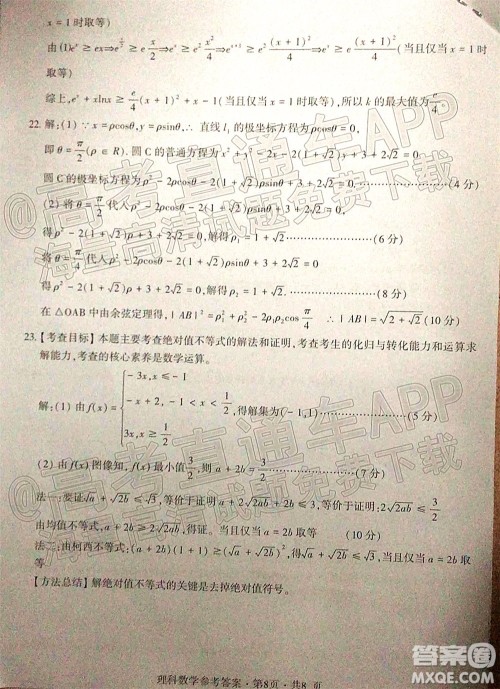 x = 1 时取等)
由 (1)eˣ ≥ ex ⇒ e^{x/2} ≥ e x/2 ⇒ eˣ ≥ e² x²/4 ⇒ e^{x+1} ≥ e² (x+1)²/4 ⇒ eˣ ≥ e (x+1)²/4 (当且仅当 x = 1 时
取等)
综上,eˣ + xlnx ≥ e/4 (x+1)² + x - 1(当且仅当 x = 1 时取等), 所以 k 的最大值为 e/4
22. 解:(1) ∵ x = ρcosθ, y = ρsinθ, ∴ 直线 l₁ 的极坐标方程为 ρcosθ = 0
即 θ = π/2 (ρ ∈ R). 圆 C 的普通方程为 x² + y² - 2x - 2(1+√2)y + 3 + 2√2 = 0
圆 C 的极坐标方程为 ρ² - 2ρcosθ - 2(1+√2)ρsinθ + 3 + 2√2 = 0 (4 分)
(2) 将 θ = π/2 代入 ρ² - 2ρcosθ - 2(1+√2)ρsinθ + 3 + 2√2 = 0,
得 ρ² - 2(1+√2)ρ + 3 + 2√2 = 0, 解得 ρ₁ = 1 + √2 ⋯⋯ (6 分)
将 θ = π/4 代入 ρ² - 2ρcosθ - 2(1+√2)ρsinθ + 3 + 2√2 = 0
得 ρ² - 2(1+√2)ρ + 3 + 2√2 = 0, 解得 ρ₂ = 1 + √2 ⋯⋯ (8 分)
在 △OAB 中由余弦定理得, |AB|² = ρ₁² + ρ₂² - 2ρ₁ρ₂cos π/4 ∴ |AB| = √(2+√2) (10 分)
23. 【考查目标】本题主要考查绝对值不等式的解法和证明, 考查考生的化归与转化能力和运算求
解能力, 考查的核心素养是数学运算。
解:(1) 由 f(x) = { -3x, x ≤ -1
-x + 2, -1 < x < 1/2, 得解集为 (-1,1) (5 分)
3x, x ≥ 1/2
(2) 由 f(x) 图像知, f(x) 最小值 3/2, 则 a + 2b = 3/2
法一:要证 √a + √2b ≤ √3, 等价于证明 a + 2b + 2√2ab ≤ 3, 等价于证明: 2√2ab ≤ 3/2
由均值不等式, a + 2b ≥ 2√2ab, 得证。当且仅当 a = 2b 取等 (10 分)
法二:由柯西不等式:(a + 2b)(1 + 1) ≥ (√a + √2b)², ∴ √a + √2b ≤ √3, 当且仅当 a = 2b 取
等
【方法总结】解绝对值不等式的关键是去掉绝对值符号。
理科数学参考答案・第8页・共8 页
@高考直通车APP
海量高清试题免费下载
@高考直通车APP
海量高清试题免费下载
答案圈
MXQE.COM